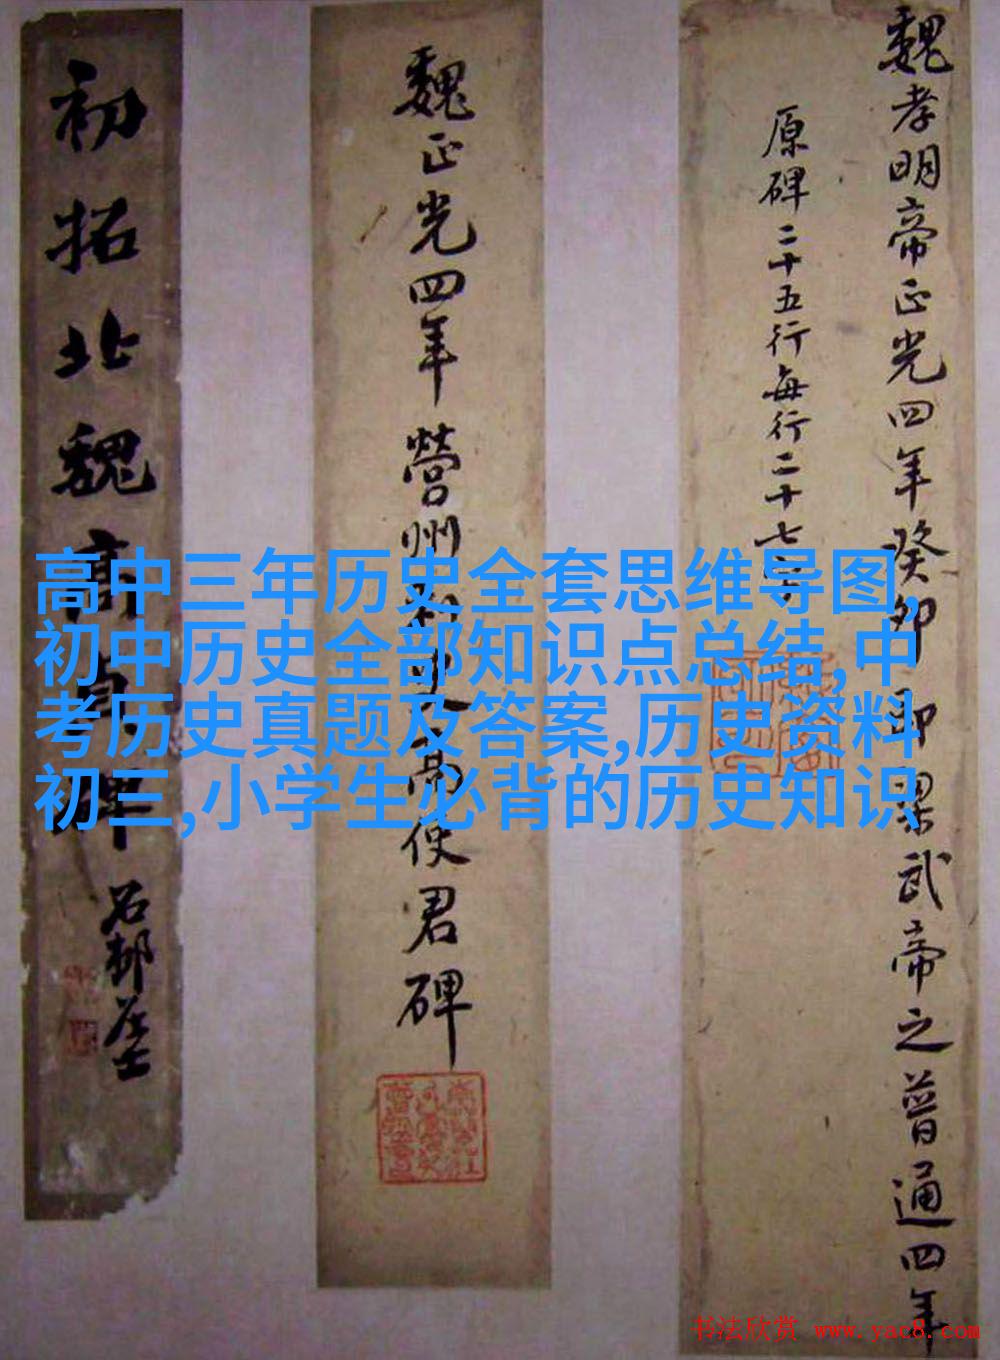 魏孝明帝正光四年癸卯即梁武帝之普通四年
原碑二十五行每行二十七字
魏正光四年營州刺史高使君碑
初拓北魏高貞碑
石邨居士
高中三年历史全套思维导图,
初中历史全部知识点总结,中
考历史真题及答案,历史资料
初三,小学生必背的历史知识
书法欣赏 www.yac8.com